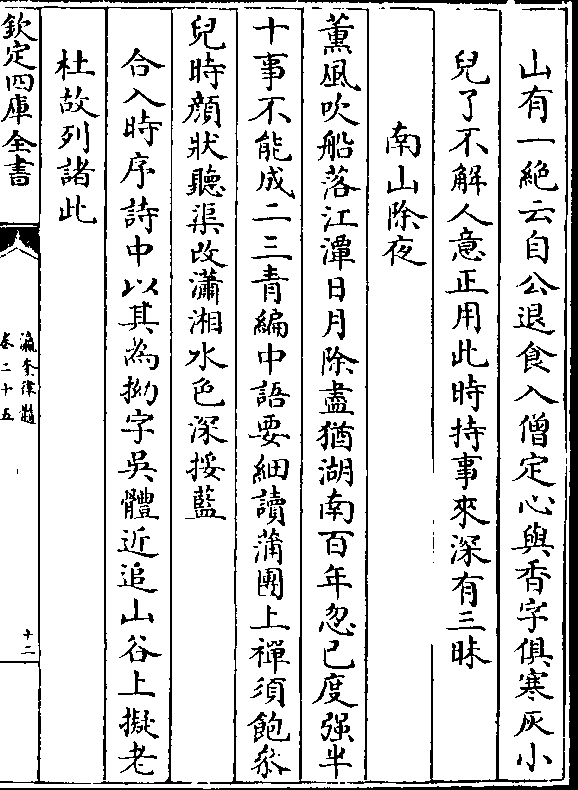 山有一絶云自公退食入僧定心與香字俱寒灰小
兒了不解人意正用此時持事來深有三昧
南山除夜
薫風吹船落江潭日月除盡猶湖南百年忽已度强半
十事不能成二三青編中語要細讀蒲團上禪須飽叅
兒時顔狀聽渠改瀟湘水色深挼藍
合入時序詩中以其為拗字吳體近追山谷上擬老
杜故列諸此
欽定四庫全書
瀛奎律髓
卷二十五
十二